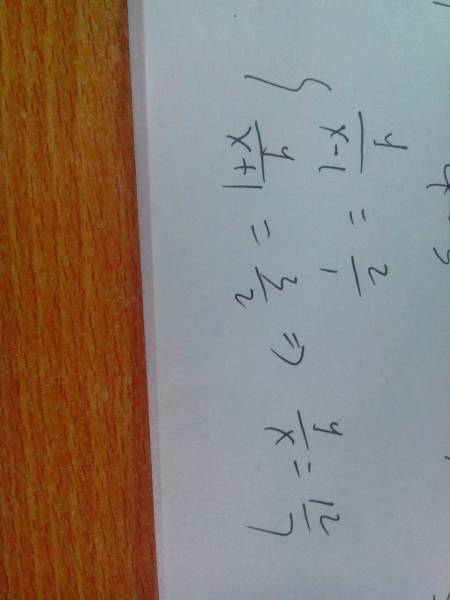 { y/(x-1) = 2/1
y/(x+1) = 3/2 ⇒ y/x = 12/7